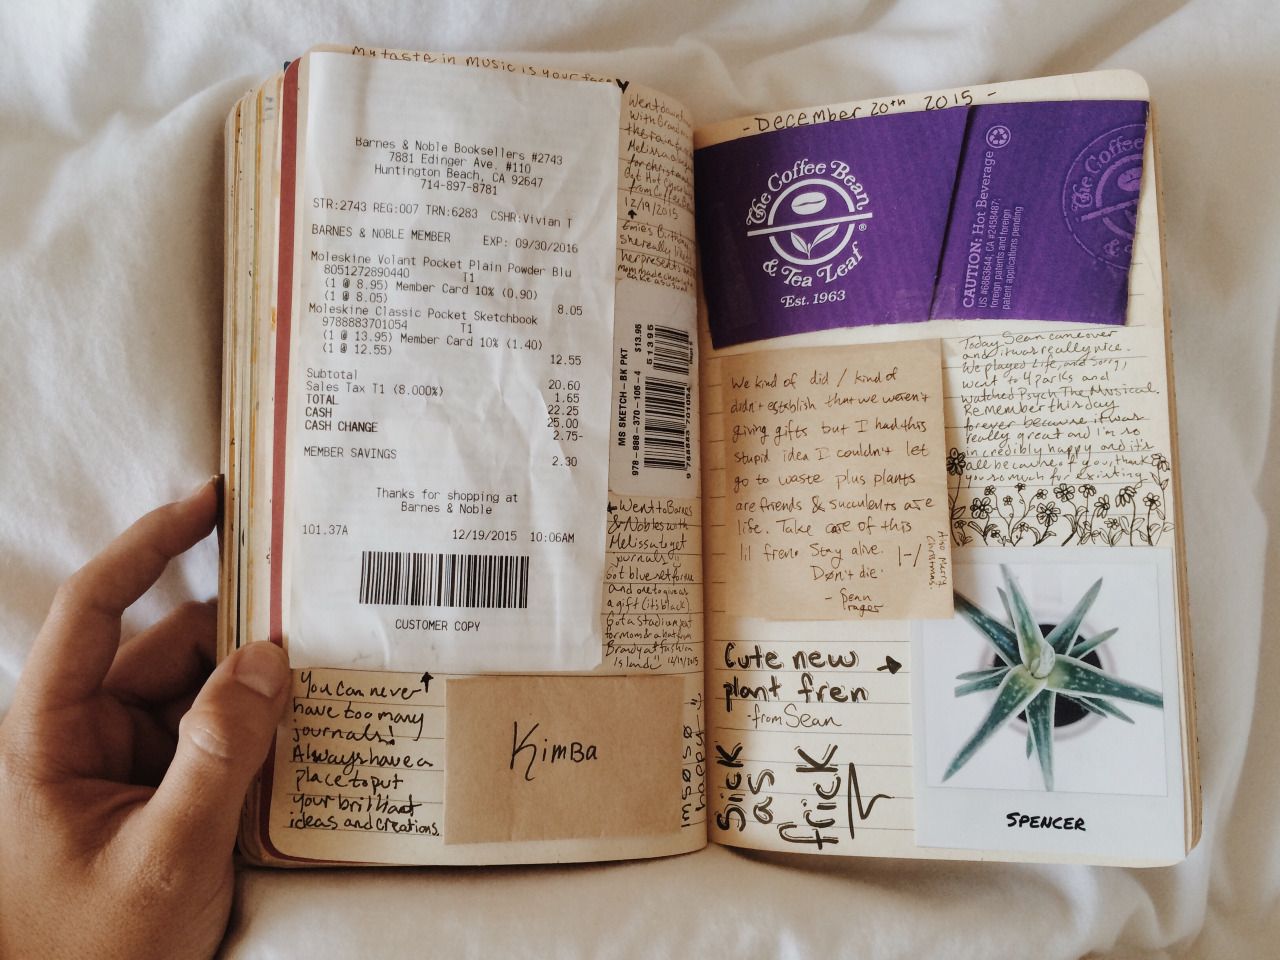 My taste in music is your face
Barnes & Noble Booksellers #2743
7881 Edinger Ave. #110
Huntington Beach, CA 92647
714-897-8781
STR:2743 REG:007 TRN:6283 CSHR:Vivian T
BARNES & NOBLE MEMBER EXP: 09/30/2016
Moleskine Volant Pocket Plain Powder Blu
8051272890440 T1
(1 @ 8.95) Member Card 10% (0.90)
(1 @ 8.05) 8.05
Moleskine Classic Pocket Sketchbook
9788883701054 T1
(1 @ 13.95) Member Card 10% (1.40)
(1 @ 12.55) 12.55
Subtotal 20.60
Sales Tax T1 (8.000%) 1.65
TOTAL 22.25
CASH 25.00
CASH CHANGE 2.75-
MEMBER SAVINGS 2.30
Thanks for shopping at
Barnes & Noble
101.37A 12/19/2015 10:06AM
CUSTOMER COPY
Went down
with
the rain
Melissa
for christmas
Got Hot
from Coffee
12/19/2015
Emie's Birthday
she really
her presents
mom made
cake as usual
MS SKETCH-BK PKT $13.95
978-888-370-105-4 51395
9 788883 701054
Went to Barnes
& Nobles with
Melissa to get
journals
Got blue set for me
and one to give as
a gift (it is black).
Got a Stadium
for mom & a hat from
Brandy at fashion
Island 12/19/2015
You can never
have too many
journals!
Always have a
place to put
your brilliant
ideas and creations.
Kimba
im so so
happy
- December 20th 2015 -
The Coffee Bean
& Tea Leaf
®
Est. 1963
CAUTION: Hot Beverage
US #6863644; CA #2458487;
foreign patents and foreign
patent applications pending
The Coffee Bean
Today Sean came over
and it was really nice.
We played Life, and Sorry,
went to 4 parks and
watched Psych The Musical.
Remember this day
forever because it was
really great and I'm so
incredibly happy and it's
all because of you, thank
you so much for existing
We kind of did / kind of
didn't establish that we weren't
giving gifts but I had this
stupid idea I couldn't let
go to waste plus plants
are friends & succulents are
life. Take care of this
lil fren. Stay alive.
Don't die.
Also Merry
Christmas.
Cute new
plant fren
- from Sean
Sick
as
frick
SPENCER